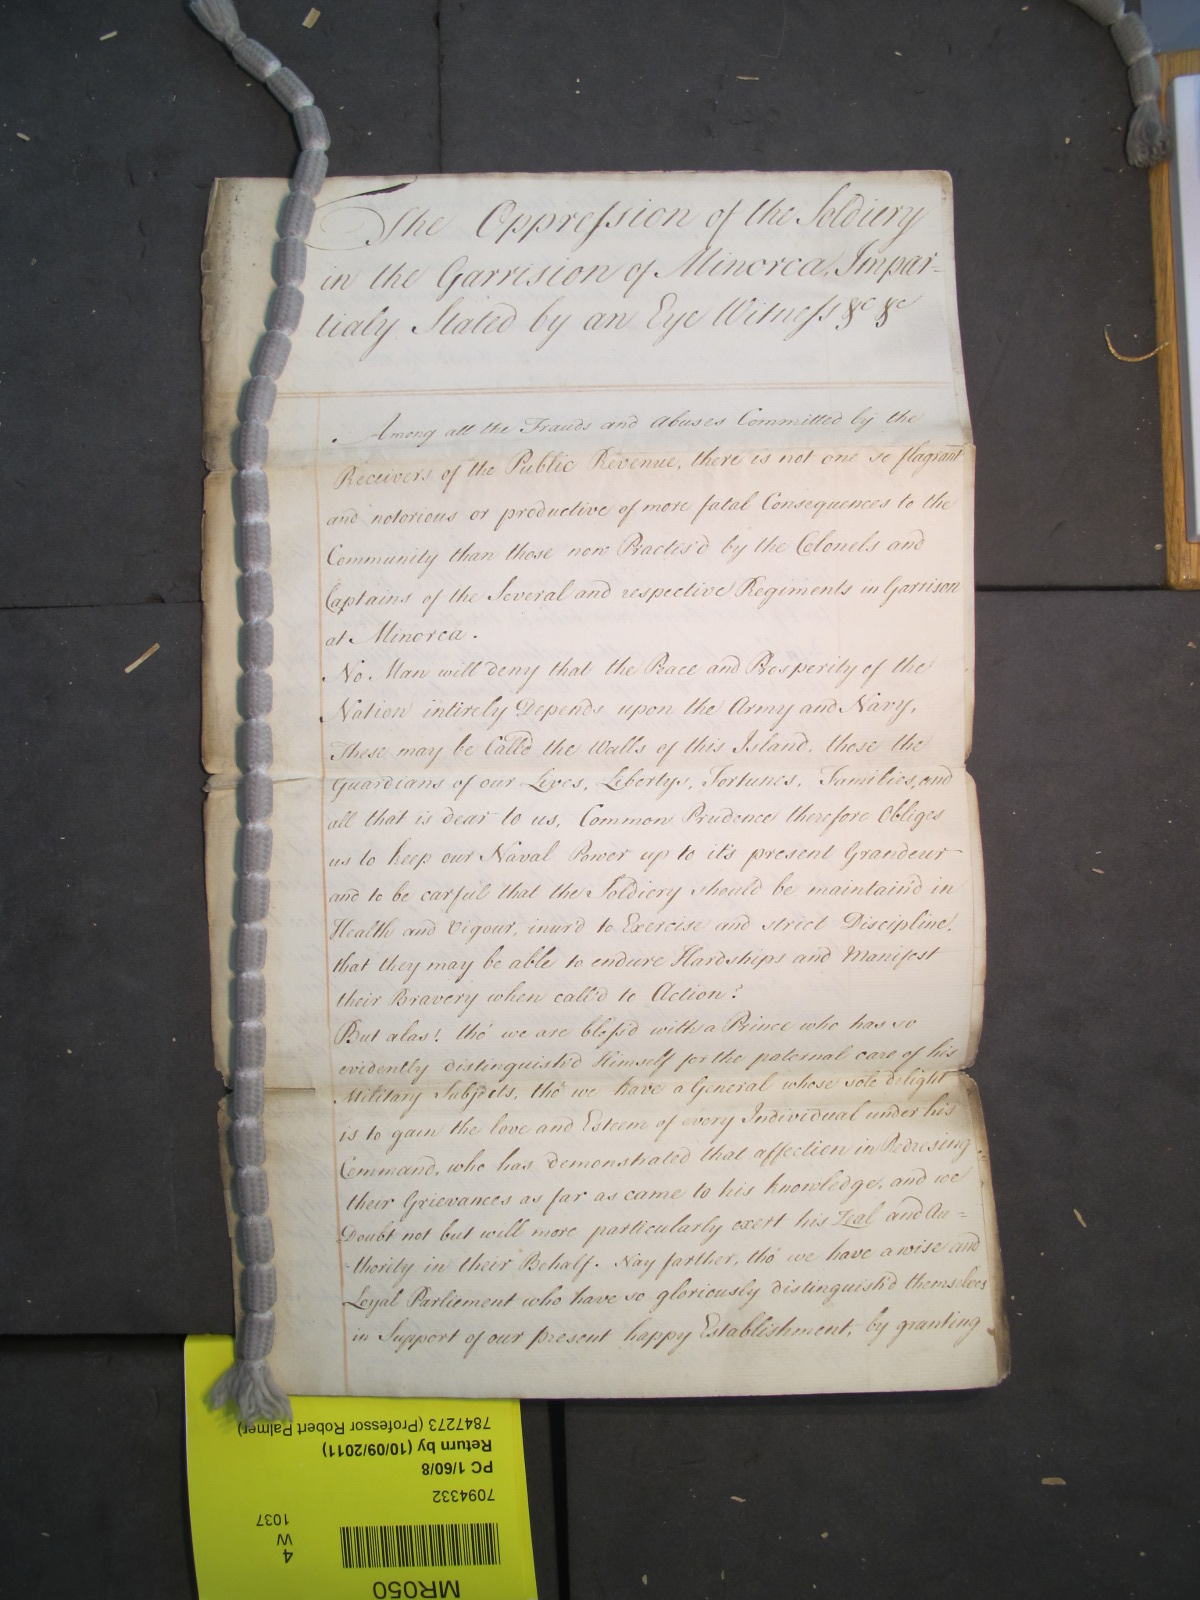 The Oppression of the Soldiery
in the Garrision of Minorca, Impar-
tialy Stated by an Eye Witness &c &c
Among all the Frauds and Abuses Committed by the
Receivers of the Public Revenue, there is not one so flagrant
and notorious or productive of more fatal Consequences to the
Community than those now Practis'd by the Colonels and
Captains of the Several and respective Regiments in Garrison
at Minorca.
No Man will deny that the Peace and Prosperity of the
Nation intirely Depends upon the Army and Navy,
These may be Call'd the Walls of this Island, those the
Guardians of our Lives, Libertys, Fortunes, Families, and
all that is dear to us, Common Prudence therefore Obliges
us to keep our Naval Power up to it's present Grandeur
and to be carful that the Soldiery should be maintain'd in
Health and Vigour, inur'd to Exercise and strict Discipline,
that they may be able to endure Hardships and Manifest
their Bravery when call'd to Action?
But alas! tho' we are bless'd with a Prince who has so
evidently distinguish'd Himself for the paternal care of his
Military Subjects, tho' we have a General whose sole delight
is to gain the love and Esteem of every Individual under his
Command, who has demonstrated that affection in Redresing
their Grievances as far as came to his knowledge, and we
Doubt not but will more particularly exert his Zeal and Au=
-thority in their Behalf. Nay farther, tho' we have a wise and
Loyal Parliement who have so gloriously distinguish'd themselves
in Support of our present happy Establishment, by granting
7847273 (Professor Robert Palmer)
Return by (10/09/2011)
PC 1/60/8
7094332
4
W
1037
MR050